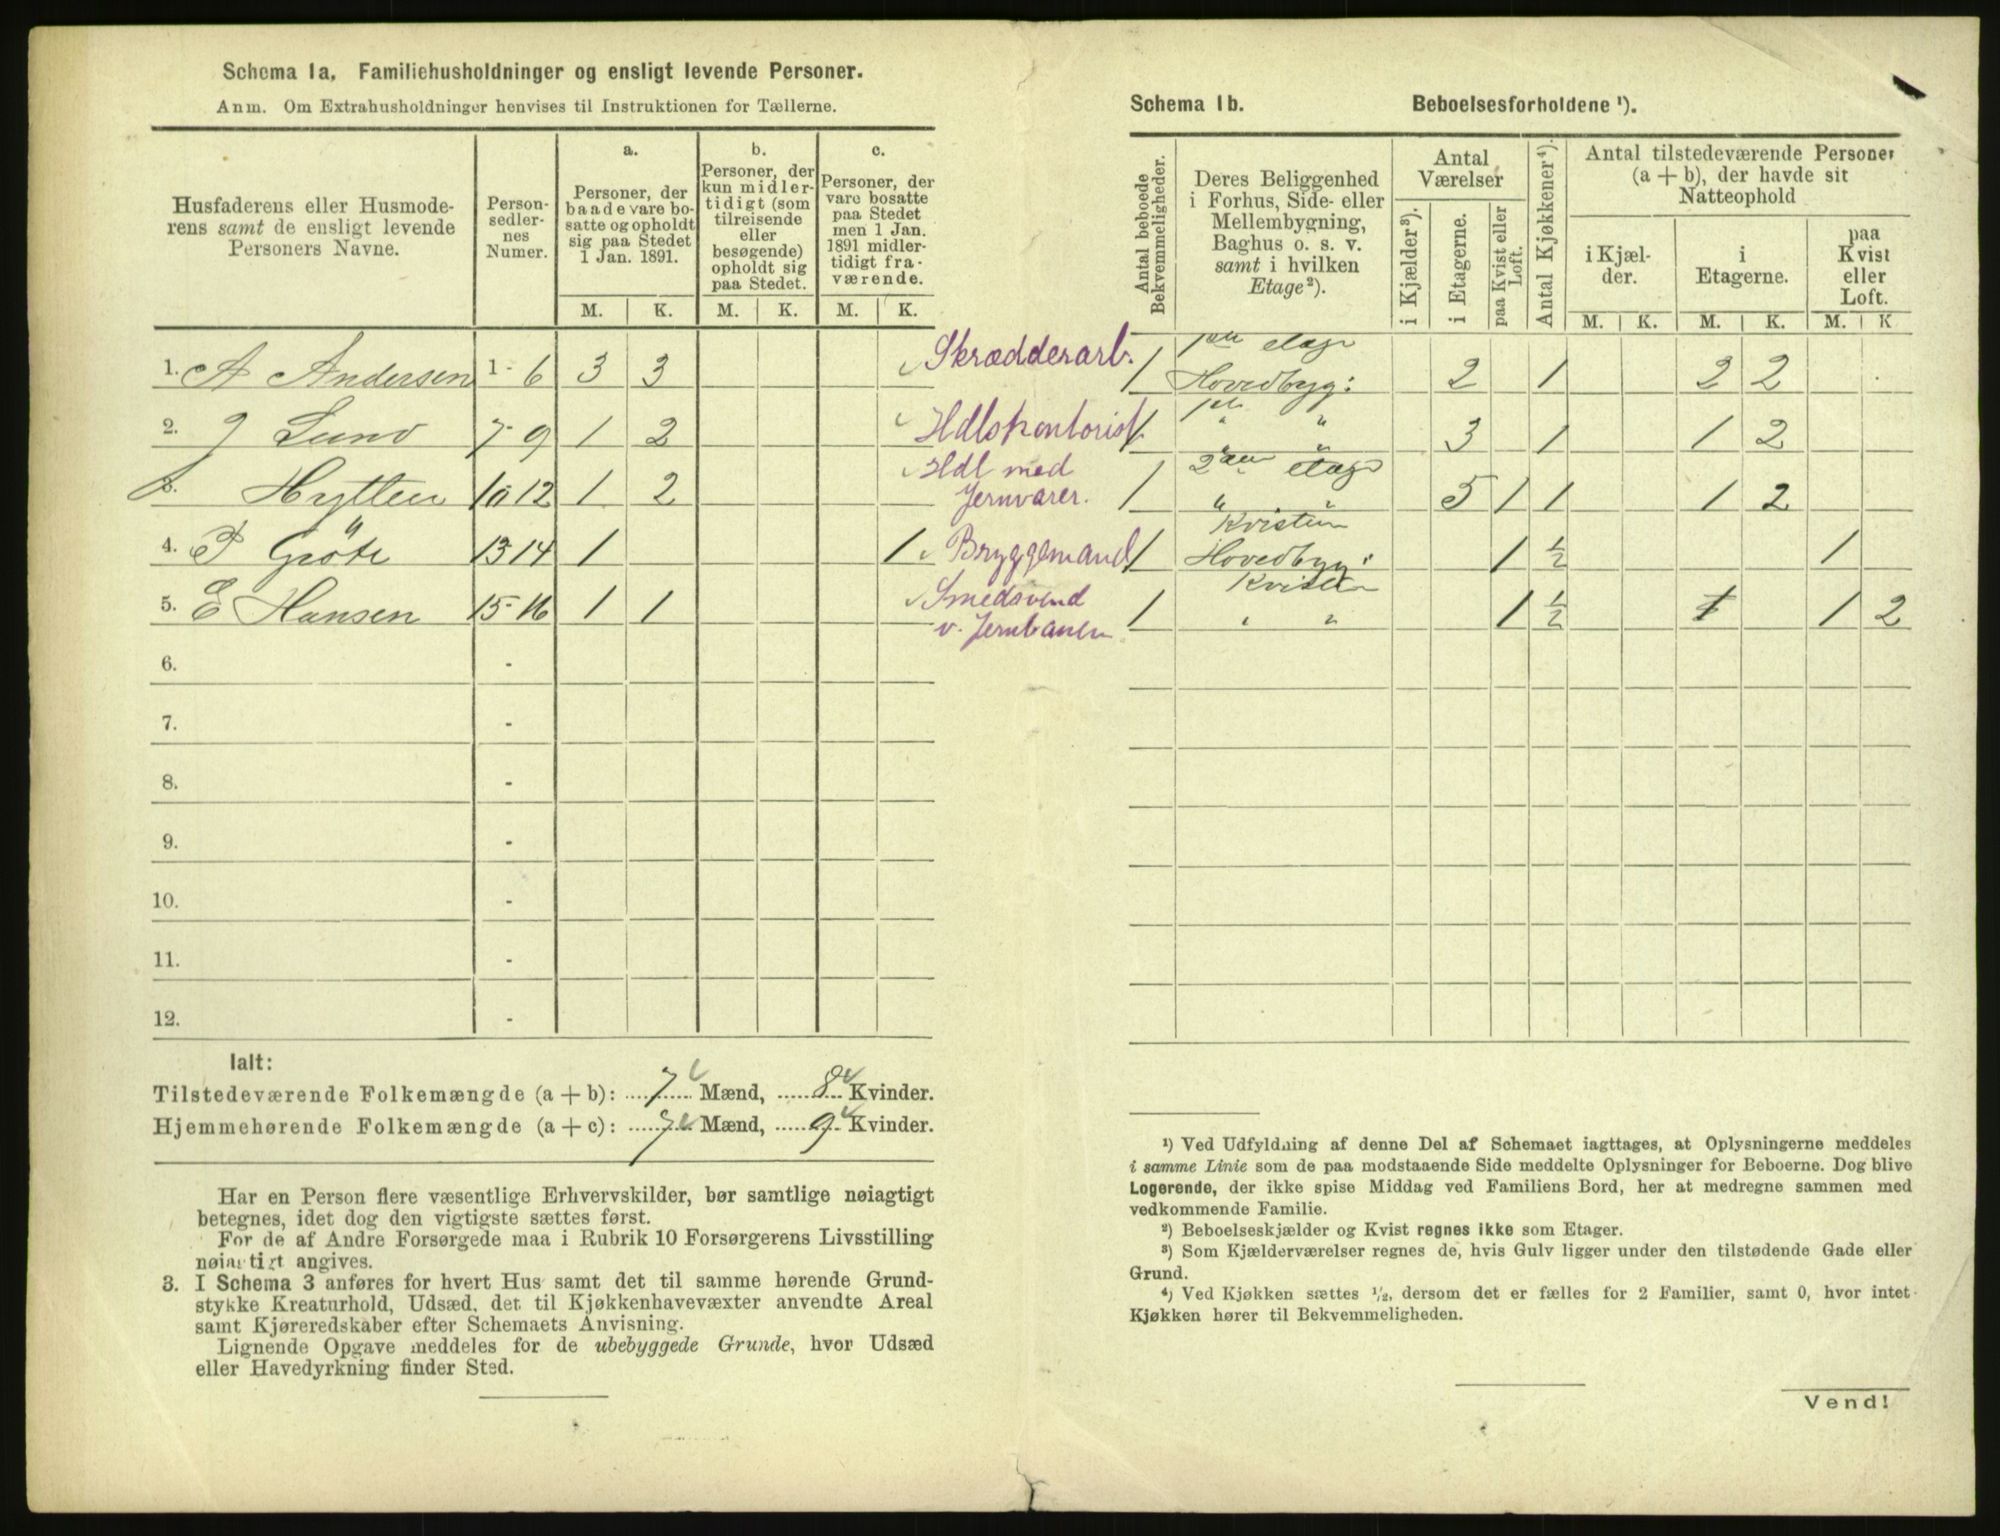 Schema 1a. Familiehusholdninger og ensligt levende Personer.
Anm. Om Extrahusholdninger henvises til Instruktionen for Tællerne.
Husfaderens eller Husmoderens samt de ensligt levende Personers Navne.
Personsedlernes Numer.
a. Personer, der baade vare bosatte og opholdt sig paa Stedet 1 Jan. 1891.
b. Personer, der kun midlertidigt (som tilreisende eller besøgende) opholdt sig paa Stedet.
c. Personer, der vare bosatte paa Stedet men 1 Jan. 1891 midlertidigt fraværende.
M. K. M. K. M. K.
1. A Andersen 1-6 3 3 Skrædderarb.
2. J Lund 7-9 1 2 Hdlskontorist
3. Hytten 10 12 1 2 Hdl med Jernvarer.
4. P Gröte 13-14 1 1 Bryggemand
5. E Hansen 15-16 1 1 Smedsvend v. Jernbanen
6. -
7. -
8. -
9. -
10. -
11. -
12. -
Ialt:
Tilstedeværende Folkemængde (a + b): 7 Mænd, 8 Kvinder.
Hjemmehørende Folkemængde (a + c): 7 Mænd, 9 Kvinder.
Har en Person flere væsentlige Erhvervskilder, bør samtlige nøiagtigt
betegnes, idet dog den vigtigste sættes først.
For de af Andre Forsørgede maa i Rubrik 10 Forsørgerens Livsstilling
nøiagtigt angives.
3. I Schema 3 anføres for hvert Hus samt det til samme hørende Grund-
stykke Kreaturhold, Udsæd, det til Kjøkkenhavevæxter anvendte Areal
samt Kjøreredskaber efter Schemaets Anvisning.
Lignende Opgave meddeles for de ubebyggede Grunde, hvor Udsæd
eller Havedyrkning finder Sted.
Schema 1b. Beboelsesforholdene ¹).
Antal beboede Bekvemmeligheder.
Deres Beliggenhed i Forhus, Side- eller Mellembygning, Baghus o. s. v. samt i hvilken Etage²).
Antal Værelser
i Kjælder³).
i Etagerne.
paa Kvist eller Loft.
Antal Kjøkkener⁴).
Antal tilstedeværende Personer (a + b), der havde sit Natteophold
i Kjælder.
i Etagerne.
paa Kvist eller Loft.
M. K. M. K. M. K
1 1ste etage Hovedbyg: 2 1 2 2
1 1ste " " 3 1 1 2
1 2den etage " " 5 1 1 1 2
1 Kvisten Hovedbyg: 1 ½ 1
1 Kvisten " " 1 ½ 1 1 2
¹) Ved Udfyldning af denne Del af Schemaet iagttages, at Oplysningerne meddeles
i samme Linie som de paa modstaaende Side meddelte Oplysninger for Beboerne. Dog blive
Logerende, der ikke spise Middag ved Familiens Bord, her at medregne sammen med
vedkommende Familie.
²) Beboelseskjælder og Kvist regnes ikke som Etager.
³) Som Kjælderværelser regnes de, hvis Gulv ligger under den tilstødende Gade eller
Grund.
⁴) Ved Kjøkken sættes ½, dersom det er fælles for 2 Familier, samt 0, hvor intet
Kjøkken hører til Bekvemmeligheden.
Vend!